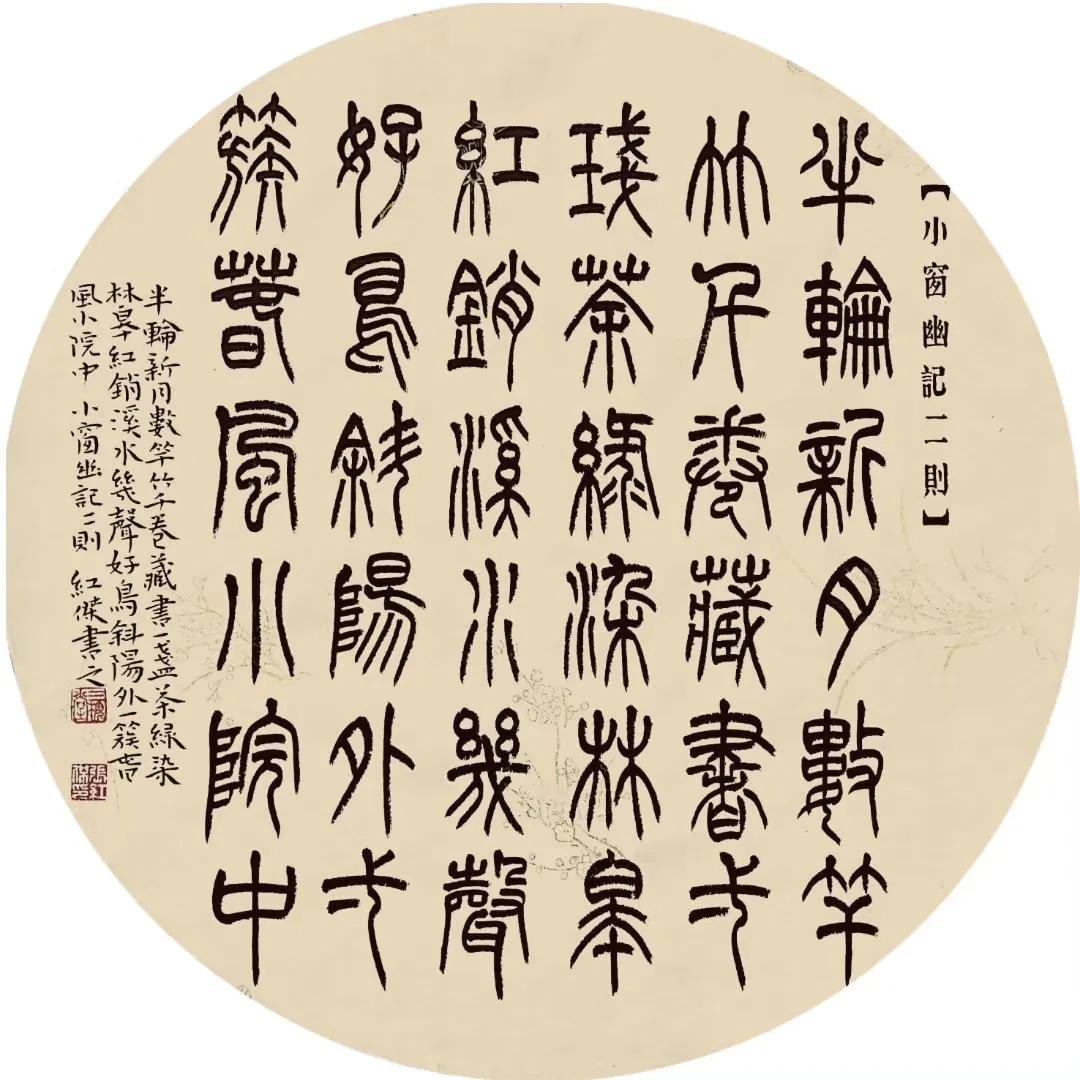 【小窗幽記二則】
半輪新月數竿
竹千卷藏書弌
琖茶綠染林皋
紅銷溪水幾聲
好鳥斜陽外弌
簇春風小院中
半輪新月數竿竹千卷藏書一盞茶綠染
林皋紅銷溪水幾聲好鳥斜陽外一簇春
風小院中 小窗幽記二則 紅傑書之
張紅傑印